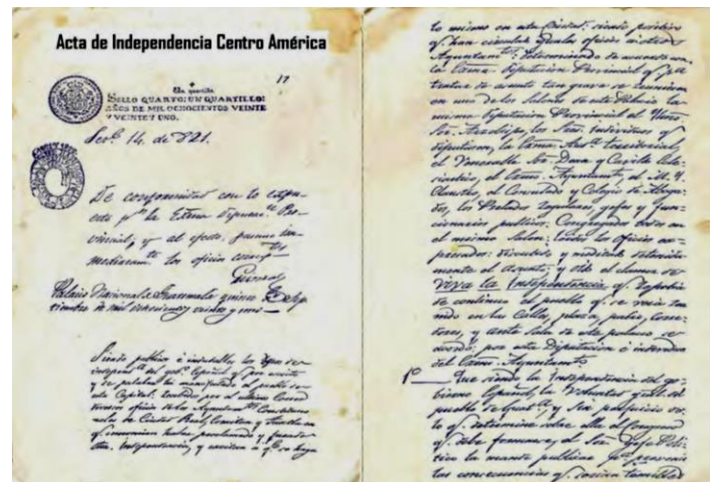 Acta de Independencia Centro América
Un quartillo
17
SELLO QUARTO: UN QUARTILLO:
AÑOS DE MIL OCHOCIENTOS VEINTE
Y VEINTE Y UNO.
14, de 821.
De conformidad con lo
por la Exma Diputac.
vincial, y al efecto,
los oficios
Palacio Nacional de Guatemala quince de Sep
tiembre de mil ochocientos veinte y uno
Siendo publicos é indudables los deseos de
independ.ª del gob.º Español q.e por escrito
y de palabra ha manifestado el pueblo de
esta Capital: recibidos por el ultimo Correo
diversos oficios de los Ayuntam.tos Constitucio
nales de Ciudad Real, Comitan y Tuxtla en
q.e comunican haber proclamado y jurado
dha. Independencia, y excitan á q.e se haga
lo mismo en esta Ciudad: siendo positivo
q.e han circulado iguales oficios á otros
Ayuntam.tos: determinado de acuerdo con
la Exma. Diputacion Provincial q.e p.a
tratar de asunto tan grave se reuniesen
en uno de los Salones de este Palacio la
misma Diputacion Provincial, el Illmo.
Sor. Arzobispo, los Sres. Individuos q.e
diputasen, la Exma. Aud.a territorial,
el Venerable Sor. Dean y Cavildo Ecle-
siastico, el Exmo. Ayuntamto, el M. Y.
Claustro, el Consulado y Colegio de Aboga-
dos, los Prelados regulares, gefes y fun-
cionarios publicos: Congregados todos en
el mismo Salon: leidos los oficios ex-
presados: discutido y meditado detenida-
mente el asunto; y oido el clamor de
Viva la Independencia q.e repetia
de continuo el pueblo q.e se veia reu
nido en las Calles, plaza, patio, Corre-
dores, y ante sala de este palacio se
acordó: por esta Diputacion é individuos
del Exmo. Ayuntamto.
1.º Que siendo la Independencia del go-
bierno Español, la Voluntad gral. del
pueblo de Guat.a, y sin perjuicio de
lo q.e determine sobre ella el Congreso
q.e debe formarse, el Sor. Gefe Poli-
tico la mande publicar p.a prevenir
las consecuencias q.e serian temibles